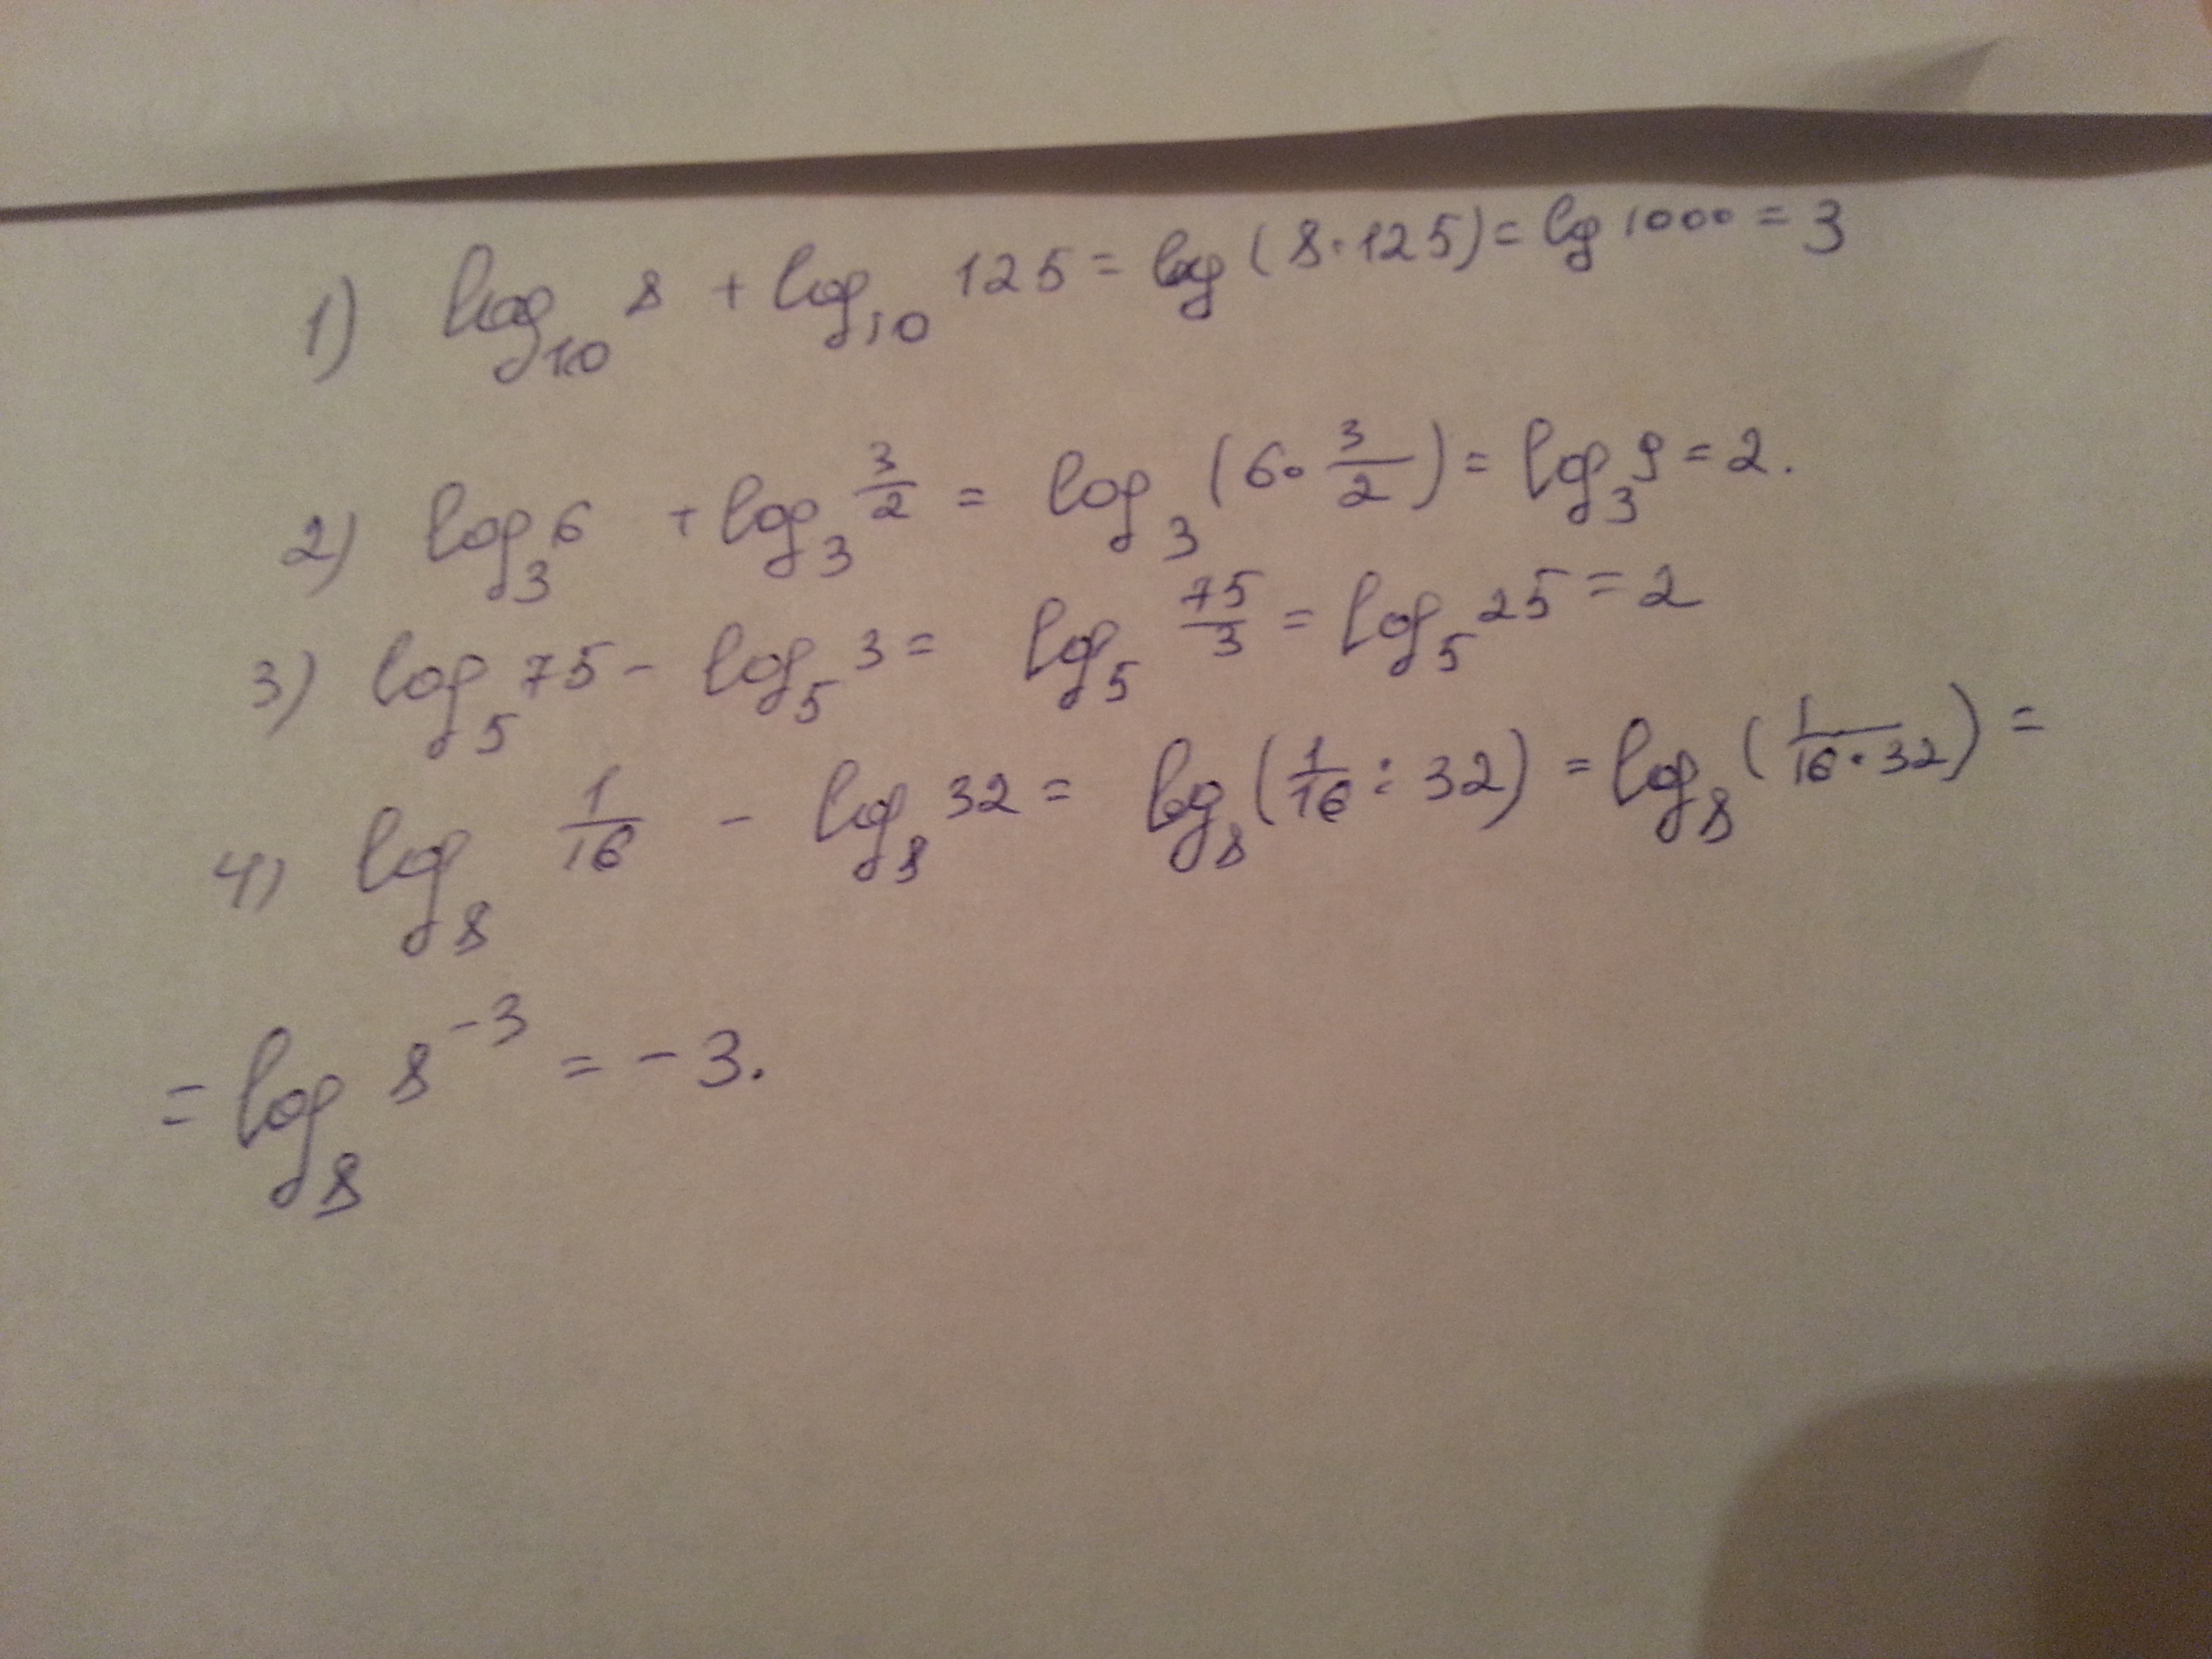 1) log₁₀ 8 + log₁₀ 125 = log (8·125) = lg 1000 = 3
2) log₃ 6 + log₃ 3/2 = log₃ (6·3/2) = log₃ 9 = 2.
3) log₅ 75 - log₅ 3 = log₅ 75/3 = log₅ 25 = 2
4) log₈ 1/16 - log₈ 32 = log₈ (1/16 : 32) = log₈ (1/(16·32)) =
= log₈ 8⁻³ = -3.